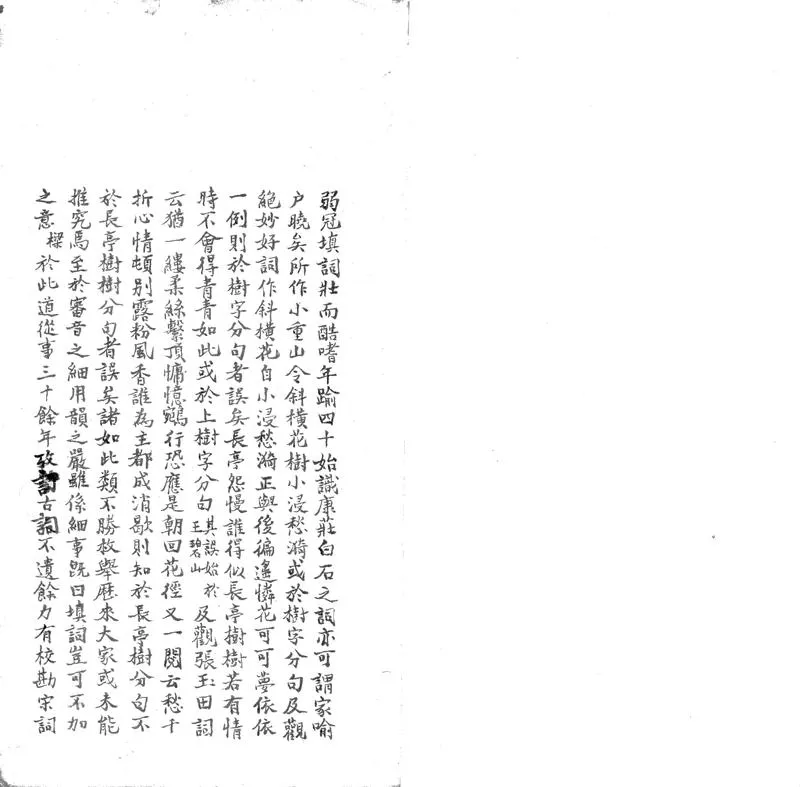 弱冠填詞壯而酷嗜年踰四十始識康莊白石之詞亦可謂家喻
户曉矣所作小重山令斜橫花樹小浸愁漪或於樹字分句及觀
絕妙好詞作斜橫花自小浸愁漪正與後徧遙憐花可可夢依依
一例則於樹字分句者誤矣長亭怨慢誰得似長亭樹樹若有情
時不會得青青如此或於上樹字分句其誤始於王碧山及觀張玉田詞
云猶一縷柔絲繫頂慵憶鵷行恐應是朝回花徑又一闋云愁千
折心情頓别露粉風香誰為主都成消歇則知於長亭樹分句不
於長亭樹樹分句者誤矣諸如此類不勝枚舉歷來大家或未能
推究焉至於審音之細用韻之嚴雖係細事既曰填詞豈可不加
之意樑於此道從事三十餘年攷訂古詞不遺餘力有校勘宋詞